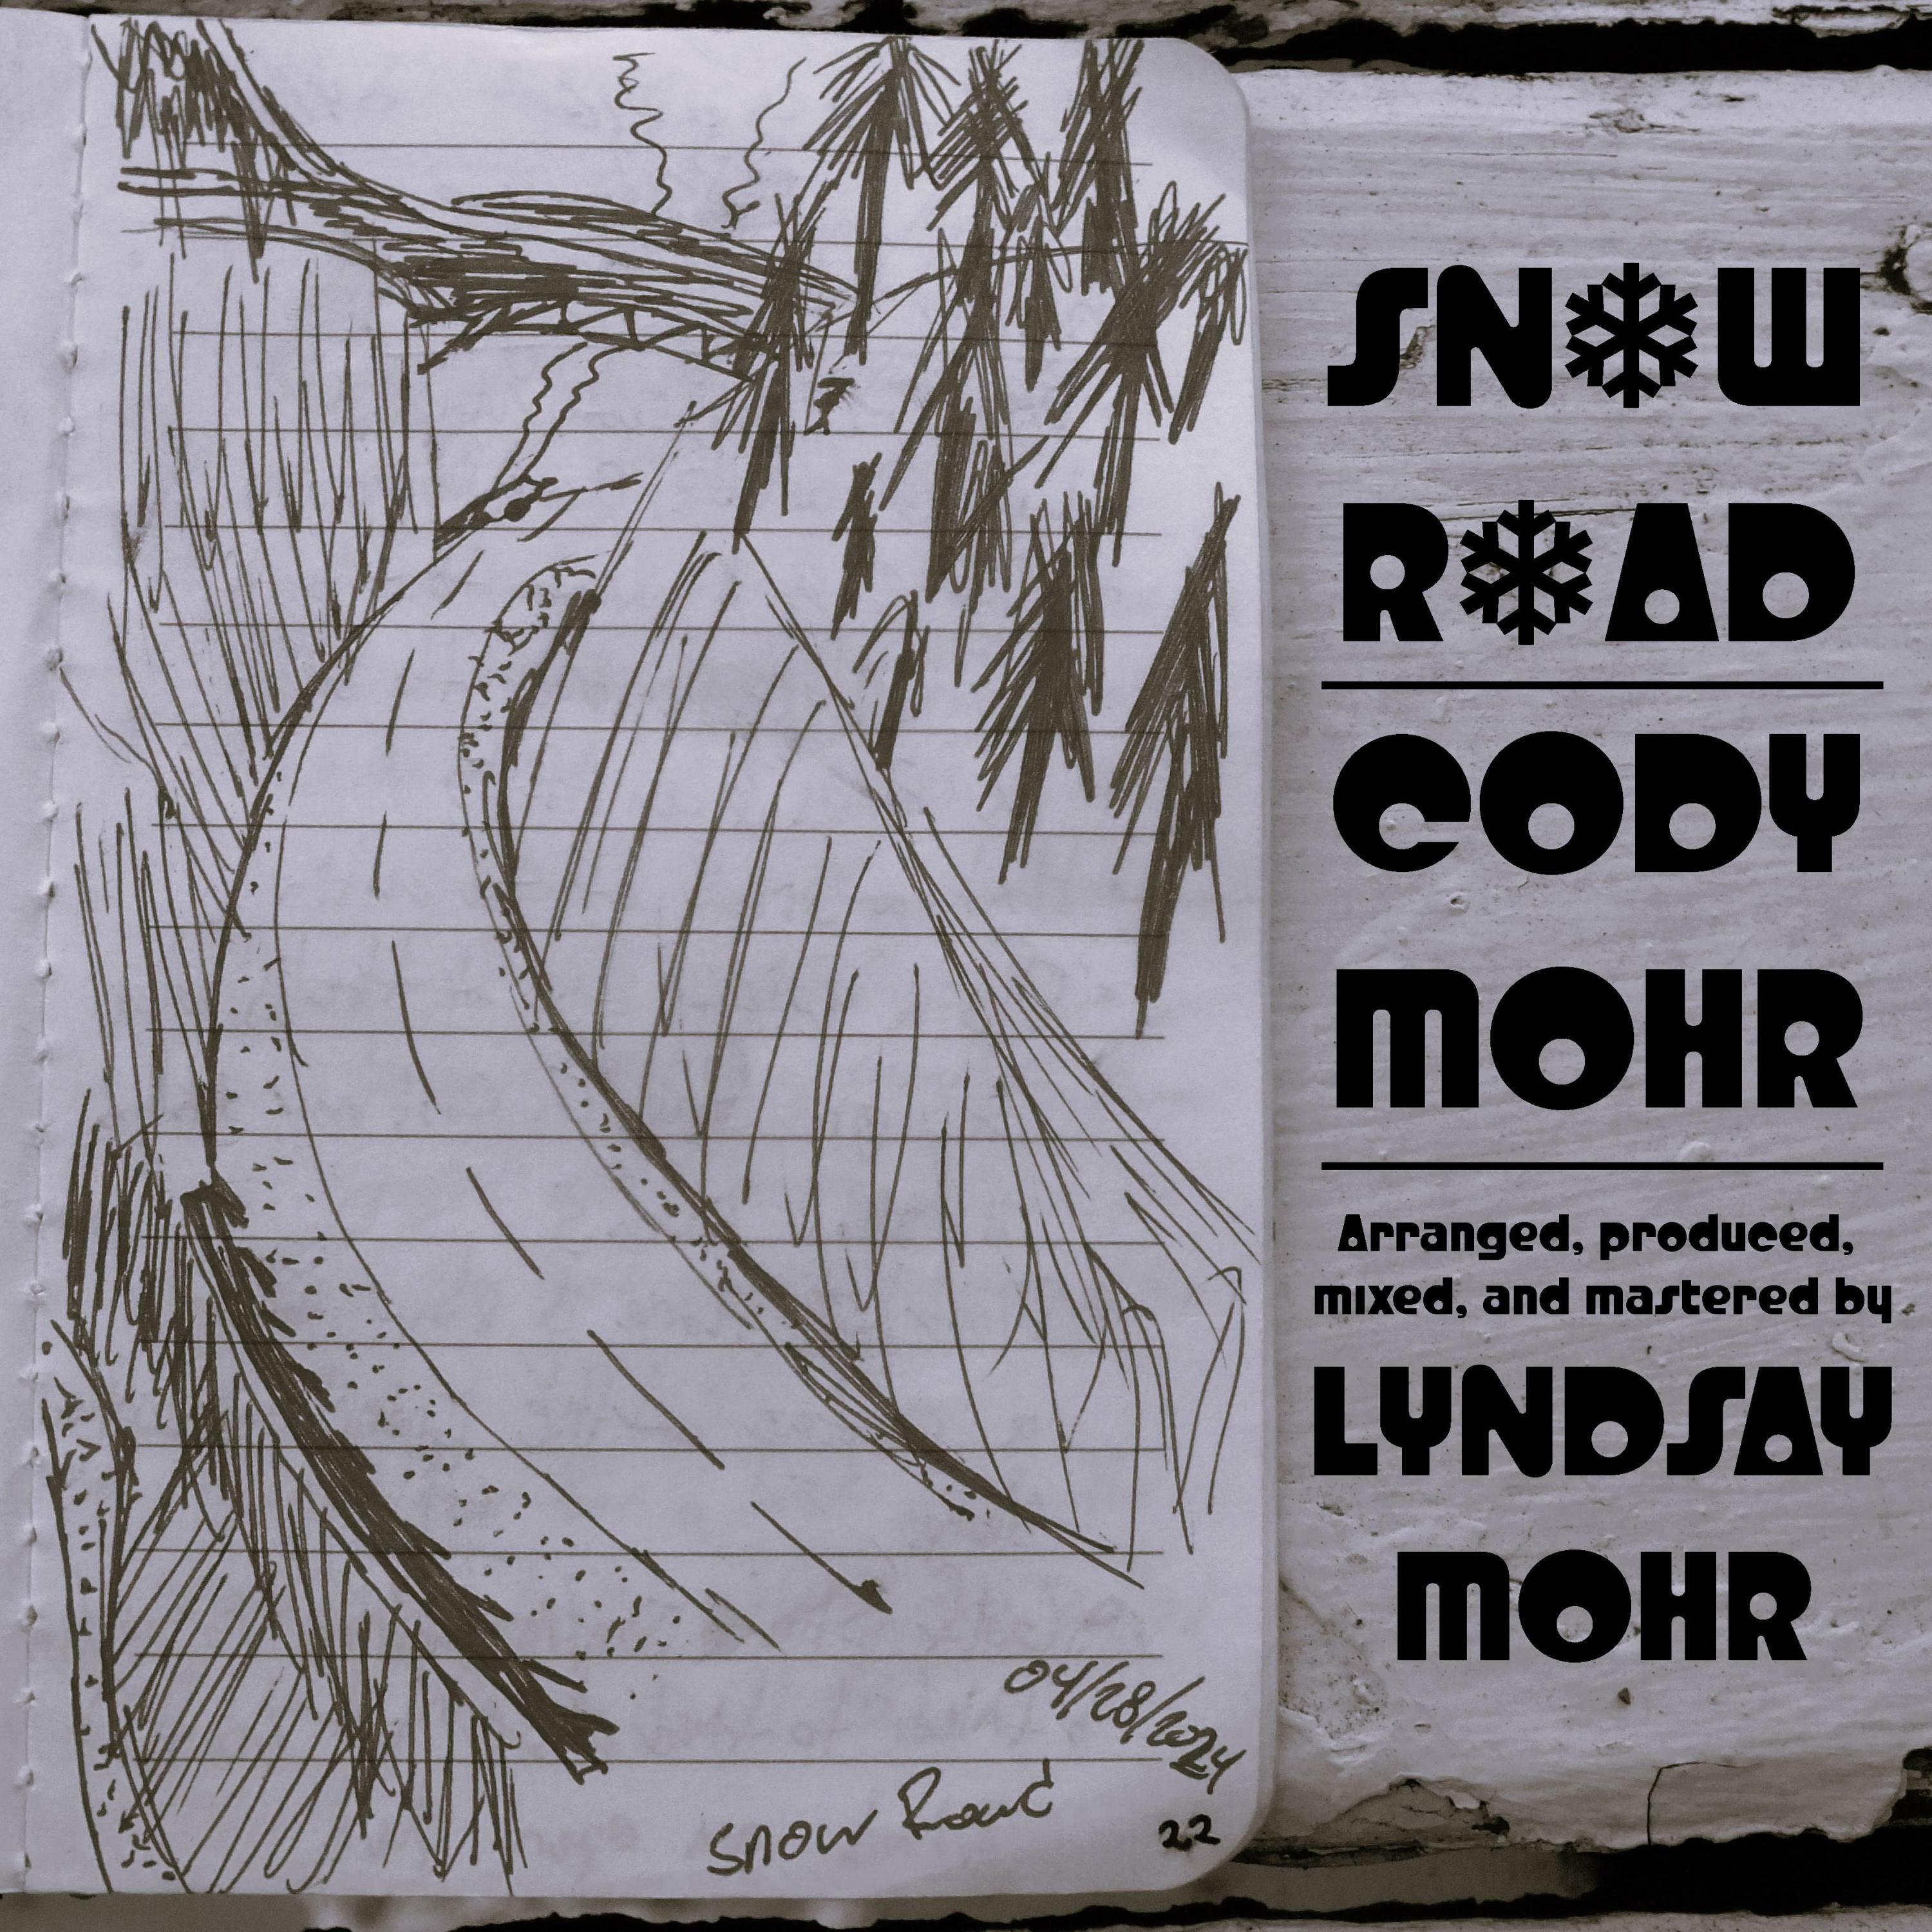 04/28/2024
Snow Road
22
SNOW
ROAD
CODY
MOHR
Arranged, produced,
mixed, and mastered by
LYNDSAY
MOHR